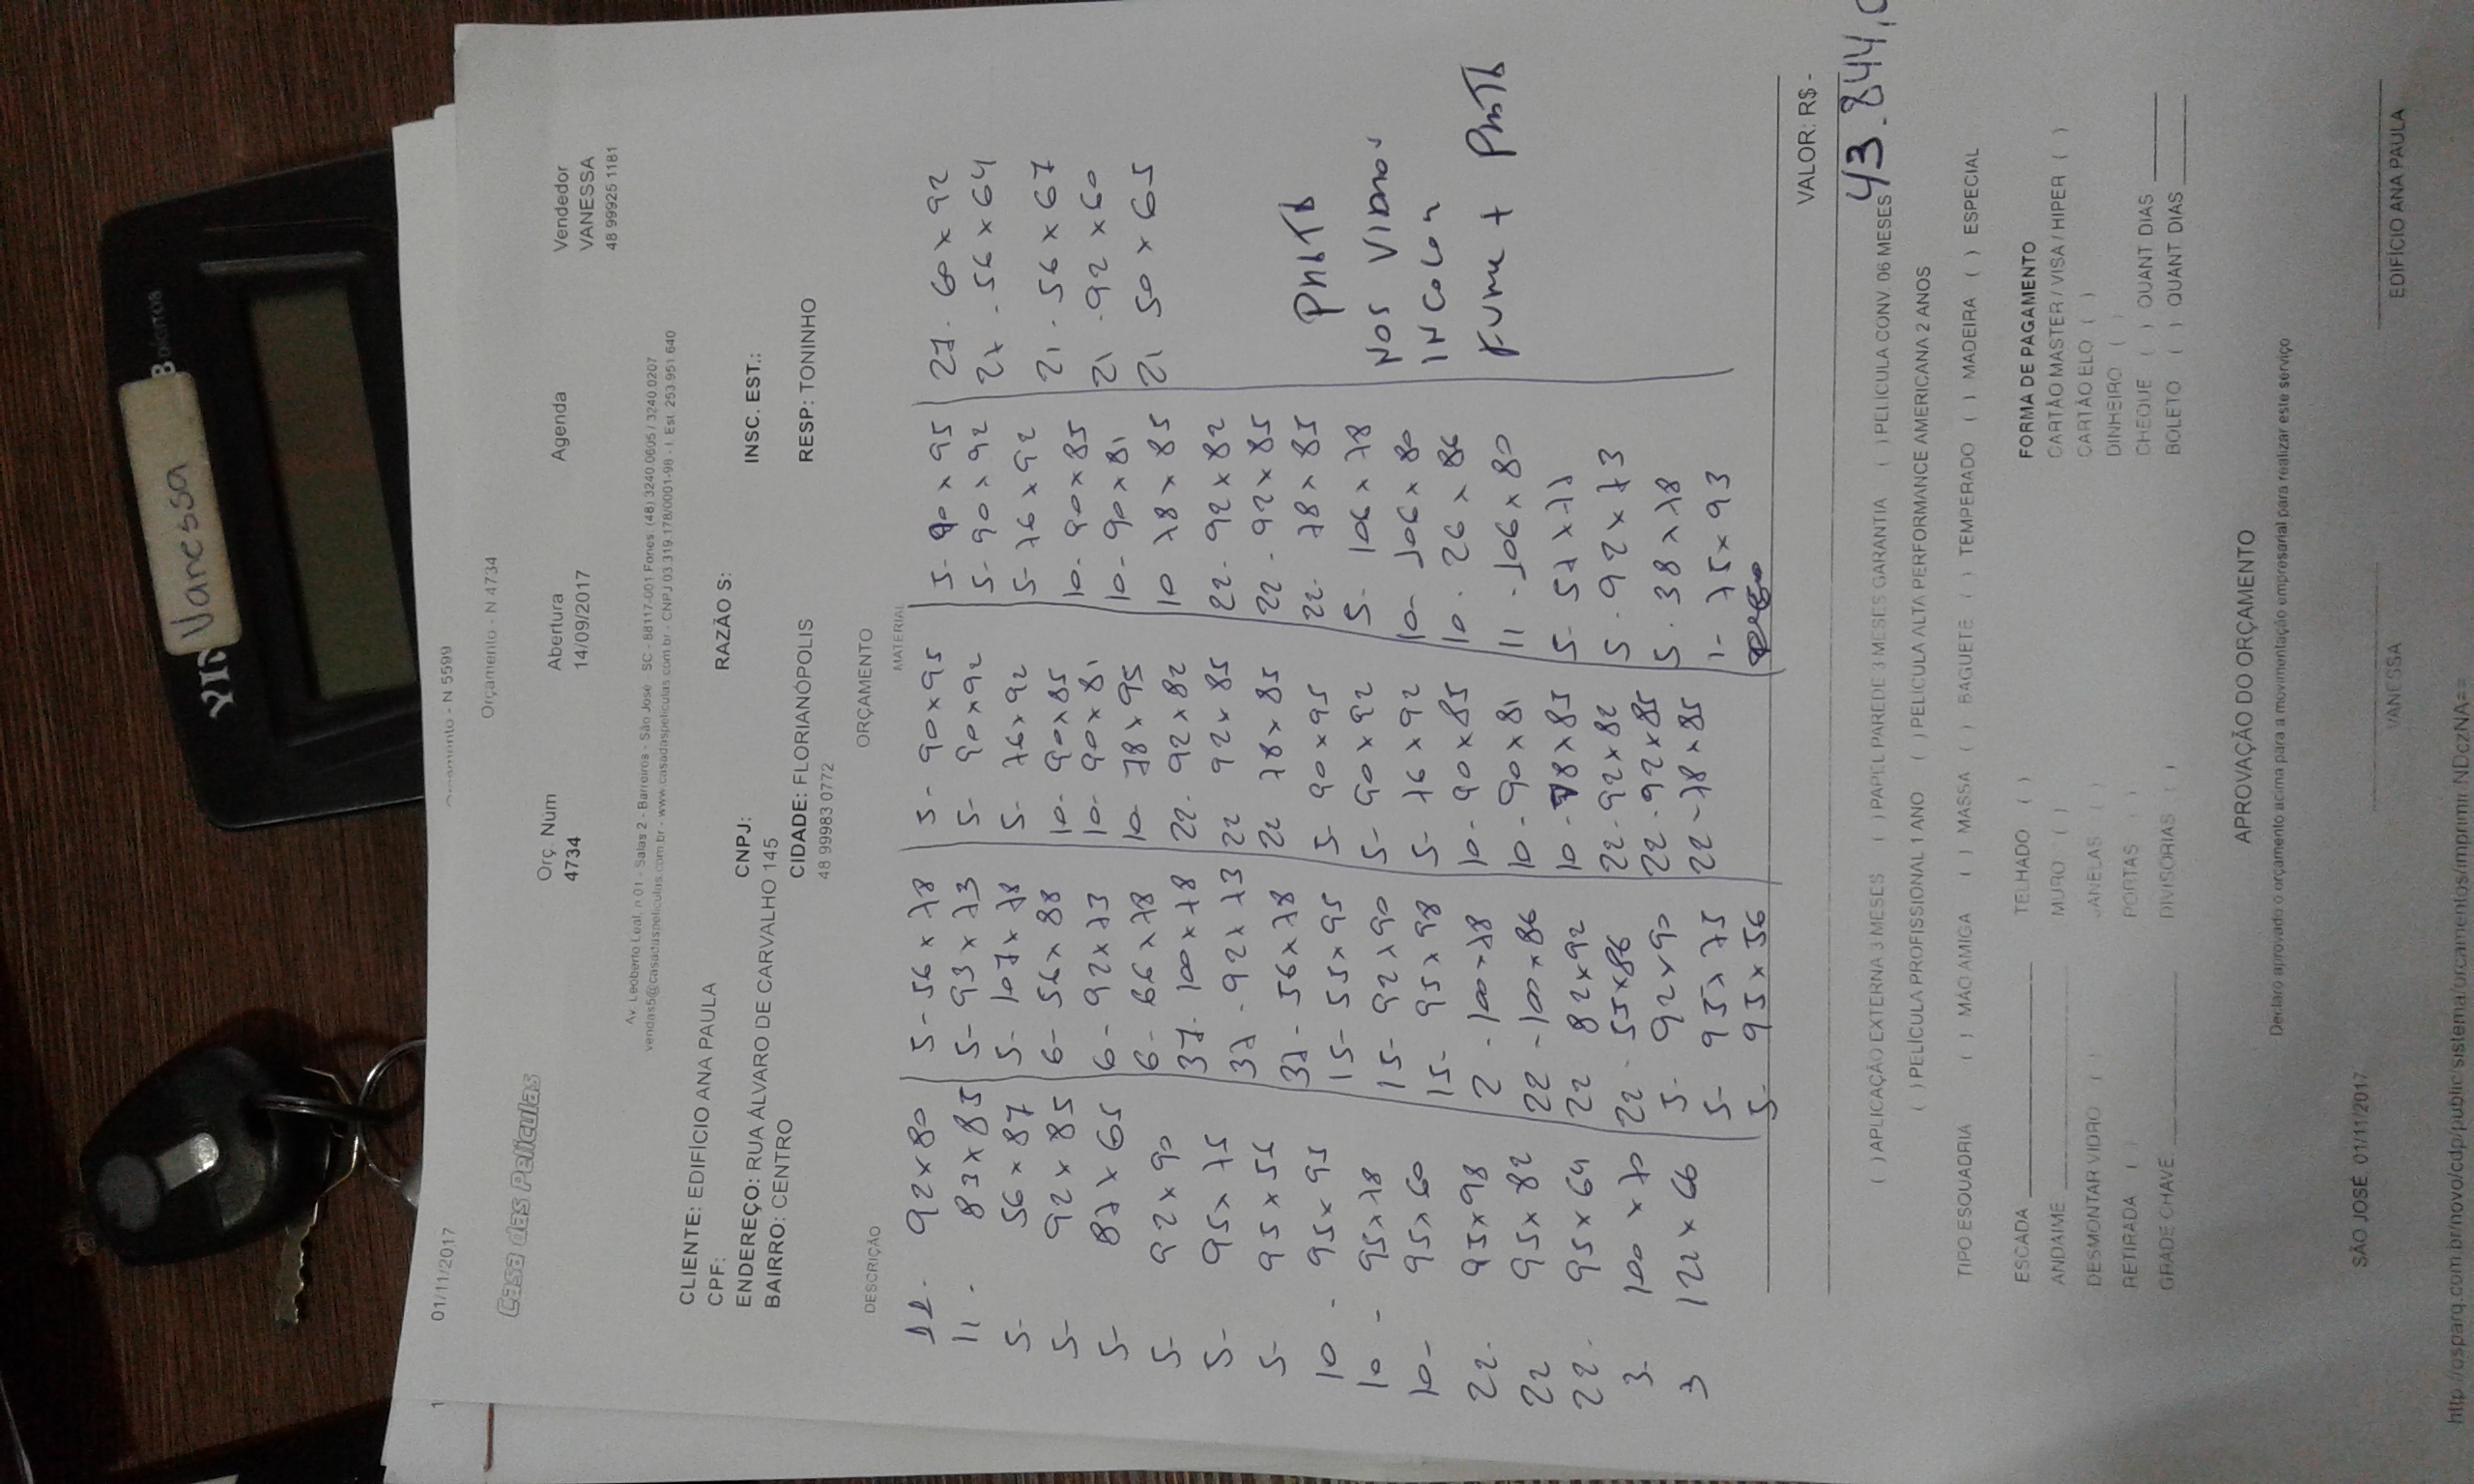 Vanessa
Orçamento - N 5599
01/11/2017
Orçamento - N 4734
Casa das Películas
Orç. Núm
4734
Abertura
14/09/2017
Agenda
Vendedor
VANESSA
48 99925 1181
Av. Leoberto Leal, n 01 - Salas 2 - Barreiros - São José - SC - 88117-001 Fones (48) 3240.0605 / 3240.0207
vendas5@casadaspeliculas.com.br - www.casadaspeliculas.com.br - CNPJ 03.319.178/0001-98 - I. Est. 253.951.640
CLIENTE: EDIFÍCIO ANA PAULA
RAZÃO S:
CPF:
CNPJ:
INSC. EST.:
ENDEREÇO: RUA ÁLVARO DE CARVALHO 145
BAIRRO: CENTRO
CIDADE: FLORIANÓPOLIS
RESP: TONINHO
48 99983 0772
ORÇAMENTO
DESCRIÇÃO
MATERIAL
11 - 92 x 80
11 - 83 x 85
5- 56 x 87
5- 92 x 85
5- 87 x 65
5- 92 x 90
5- 95 x 75
5- 95 x 56
10 - 95 x 95
10 - 95 x 78
10 - 95 x 60
22- 95 x 98
22 95 x 82
22- 95 x 64
3- 100 x 70
3 122 x 66
5- 56 x 78
5- 93 x 73
5- 107 x 78
6- 56 x 88
6- 92 x 73
6- 66 x 78
37- 100 x 78
37- 92 x 73
37- 56 x 78
15- 55 x 95
15- 92 x 90
15- 95 x 98
2 - 100 x 78
22 - 100 x 86
22 82 x 92
22- 55 x 86
5- 92 x 90
5- 95 x 75
5- 95 x 56
5- 90 x 95
5- 90 x 92
5- 76 x 92
10- 90 x 85
10- 90 x 81
10- 78 x 95
22- 92 x 82
22 92 x 85
22 78 x 85
5- 90 x 95
5- 90 x 92
5- 76 x 92
10- 90 x 85
10- 90 x 81
10- 78 x 85
22- 92 x 82
22- 92 x 85
22- 78 x 85
5- 90 x 95
5- 90 x 92
5- 76 x 92
10- 90 x 85
10- 90 x 81
10 78 x 85
22- 92 x 82
22- 92 x 85
22- 78 x 85
5- 106 x 78
10- 106 x 80
10- 26 x 86
11- 106 x 80
5- 57 x 77
5- 92 x 73
5- 38 x 78
1- 75 x 93
27- 60 x 92
27- 56 x 64
21- 56 x 67
21- 92 x 60
21 50 x 65
PRATA
NOS VIDROS
INCOLOR
FUME + PRATA
VALOR: R$ -
43.844,0
( ) APLICAÇÃO EXTERNA 3 MESES ( ) PAPEL PAREDE 3 MESES GARANTIA ( ) PELICULA CONV. 06 MESES
( ) PELÍCULA PROFISSIONAL 1 ANO ( ) PELICULA ALTA PERFORMANCE AMERICANA 2 ANOS
TIPO ESQUADRIA ( ) MÃO AMIGA ( ) MASSA ( ) BAGUETE ( ) TEMPERADO ( ) MADEIRA ( ) ESPECIAL
ESCADA
TELHADO ( )
FORMA DE PAGAMENTO
ANDAIME
MURO ( )
CARTÃO MASTER / VISA / HIPER ( )
DESMONTAR VIDRO ( )
JANELAS ( )
CARTÃO ELO ( )
RETIRADA ( )
PORTAS ( )
DINHEIRO ( )
GRADE CHAVE
DIVISORIAS ( )
CHEQUE ( ) QUANT DIAS
BOLETO ( ) QUANT DIAS
APROVAÇÃO DO ORÇAMENTO
Declaro aprovado o orçamento acima para a movimentação empresarial para realizar este serviço
SÃO JOSÉ 01/11/2017
VANESSA
EDIFÍCIO ANA PAULA